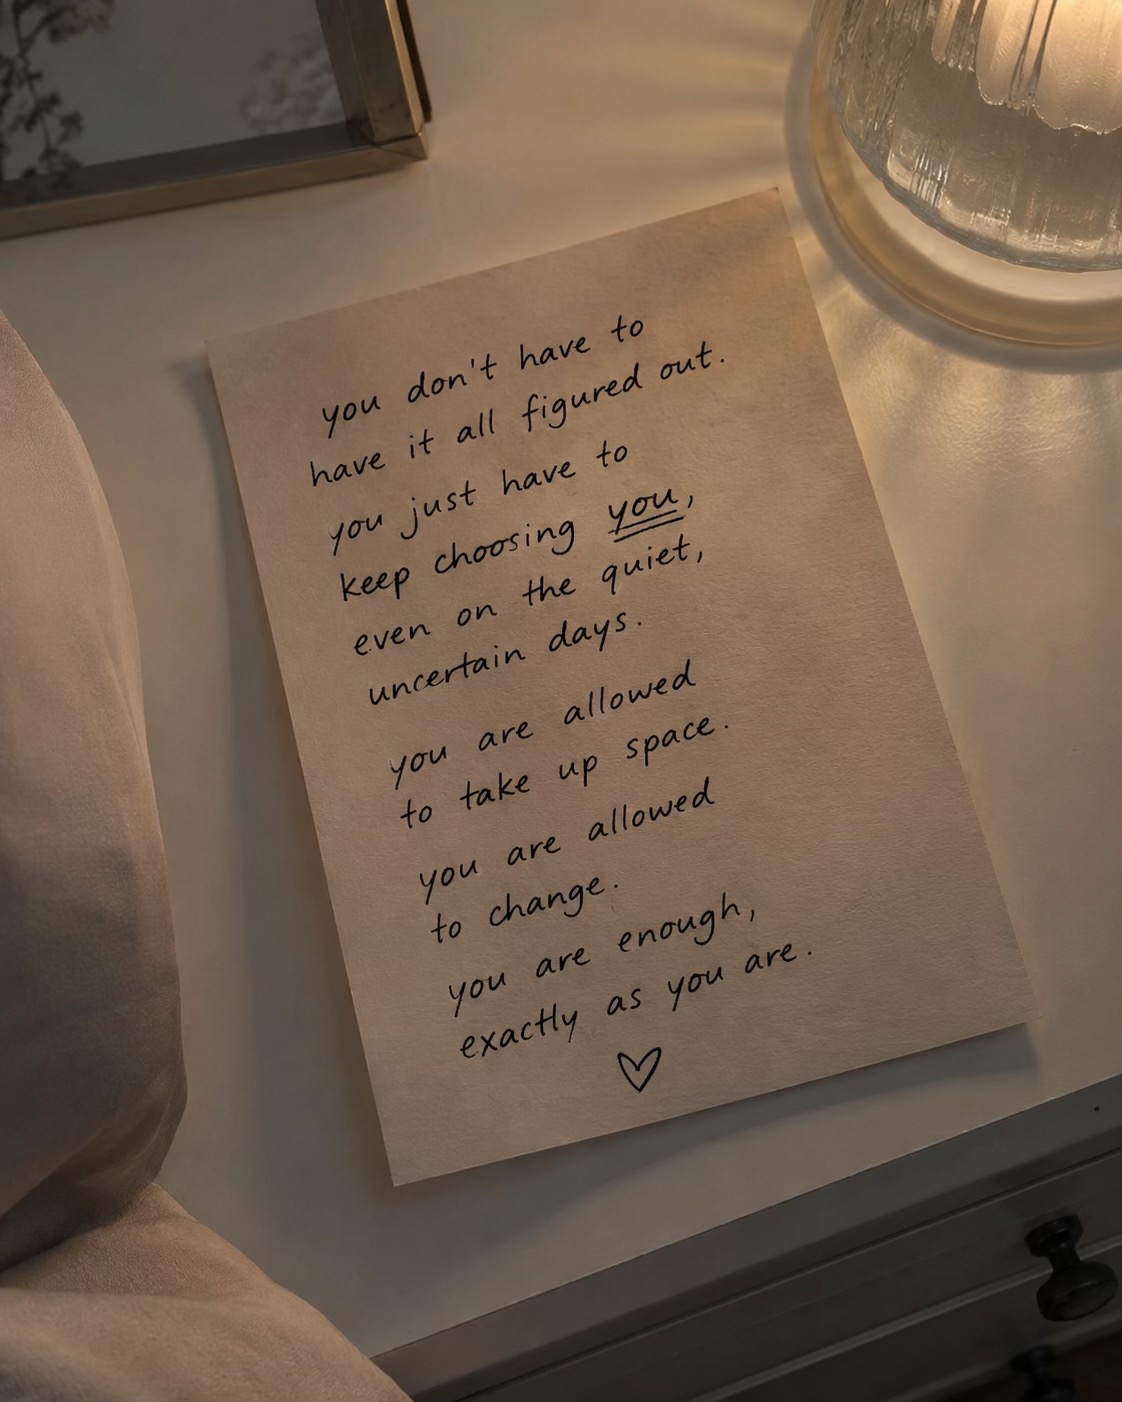 you don't have to
have it all figured out.
you just have to
keep choosing you,
even on the quiet,
uncertain days.
you are allowed
to take up space.
you are allowed
to change.
you are enough,
exactly as you are.